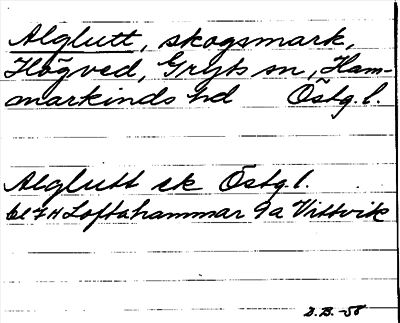 Alglutt, skogsmark,
Högved, Gryts sn, Ham-
markinds hd Östg.l.
Alglutt ek Östg.l.
bl 7H Loftahammar 9a Vittvik
D.B.-58